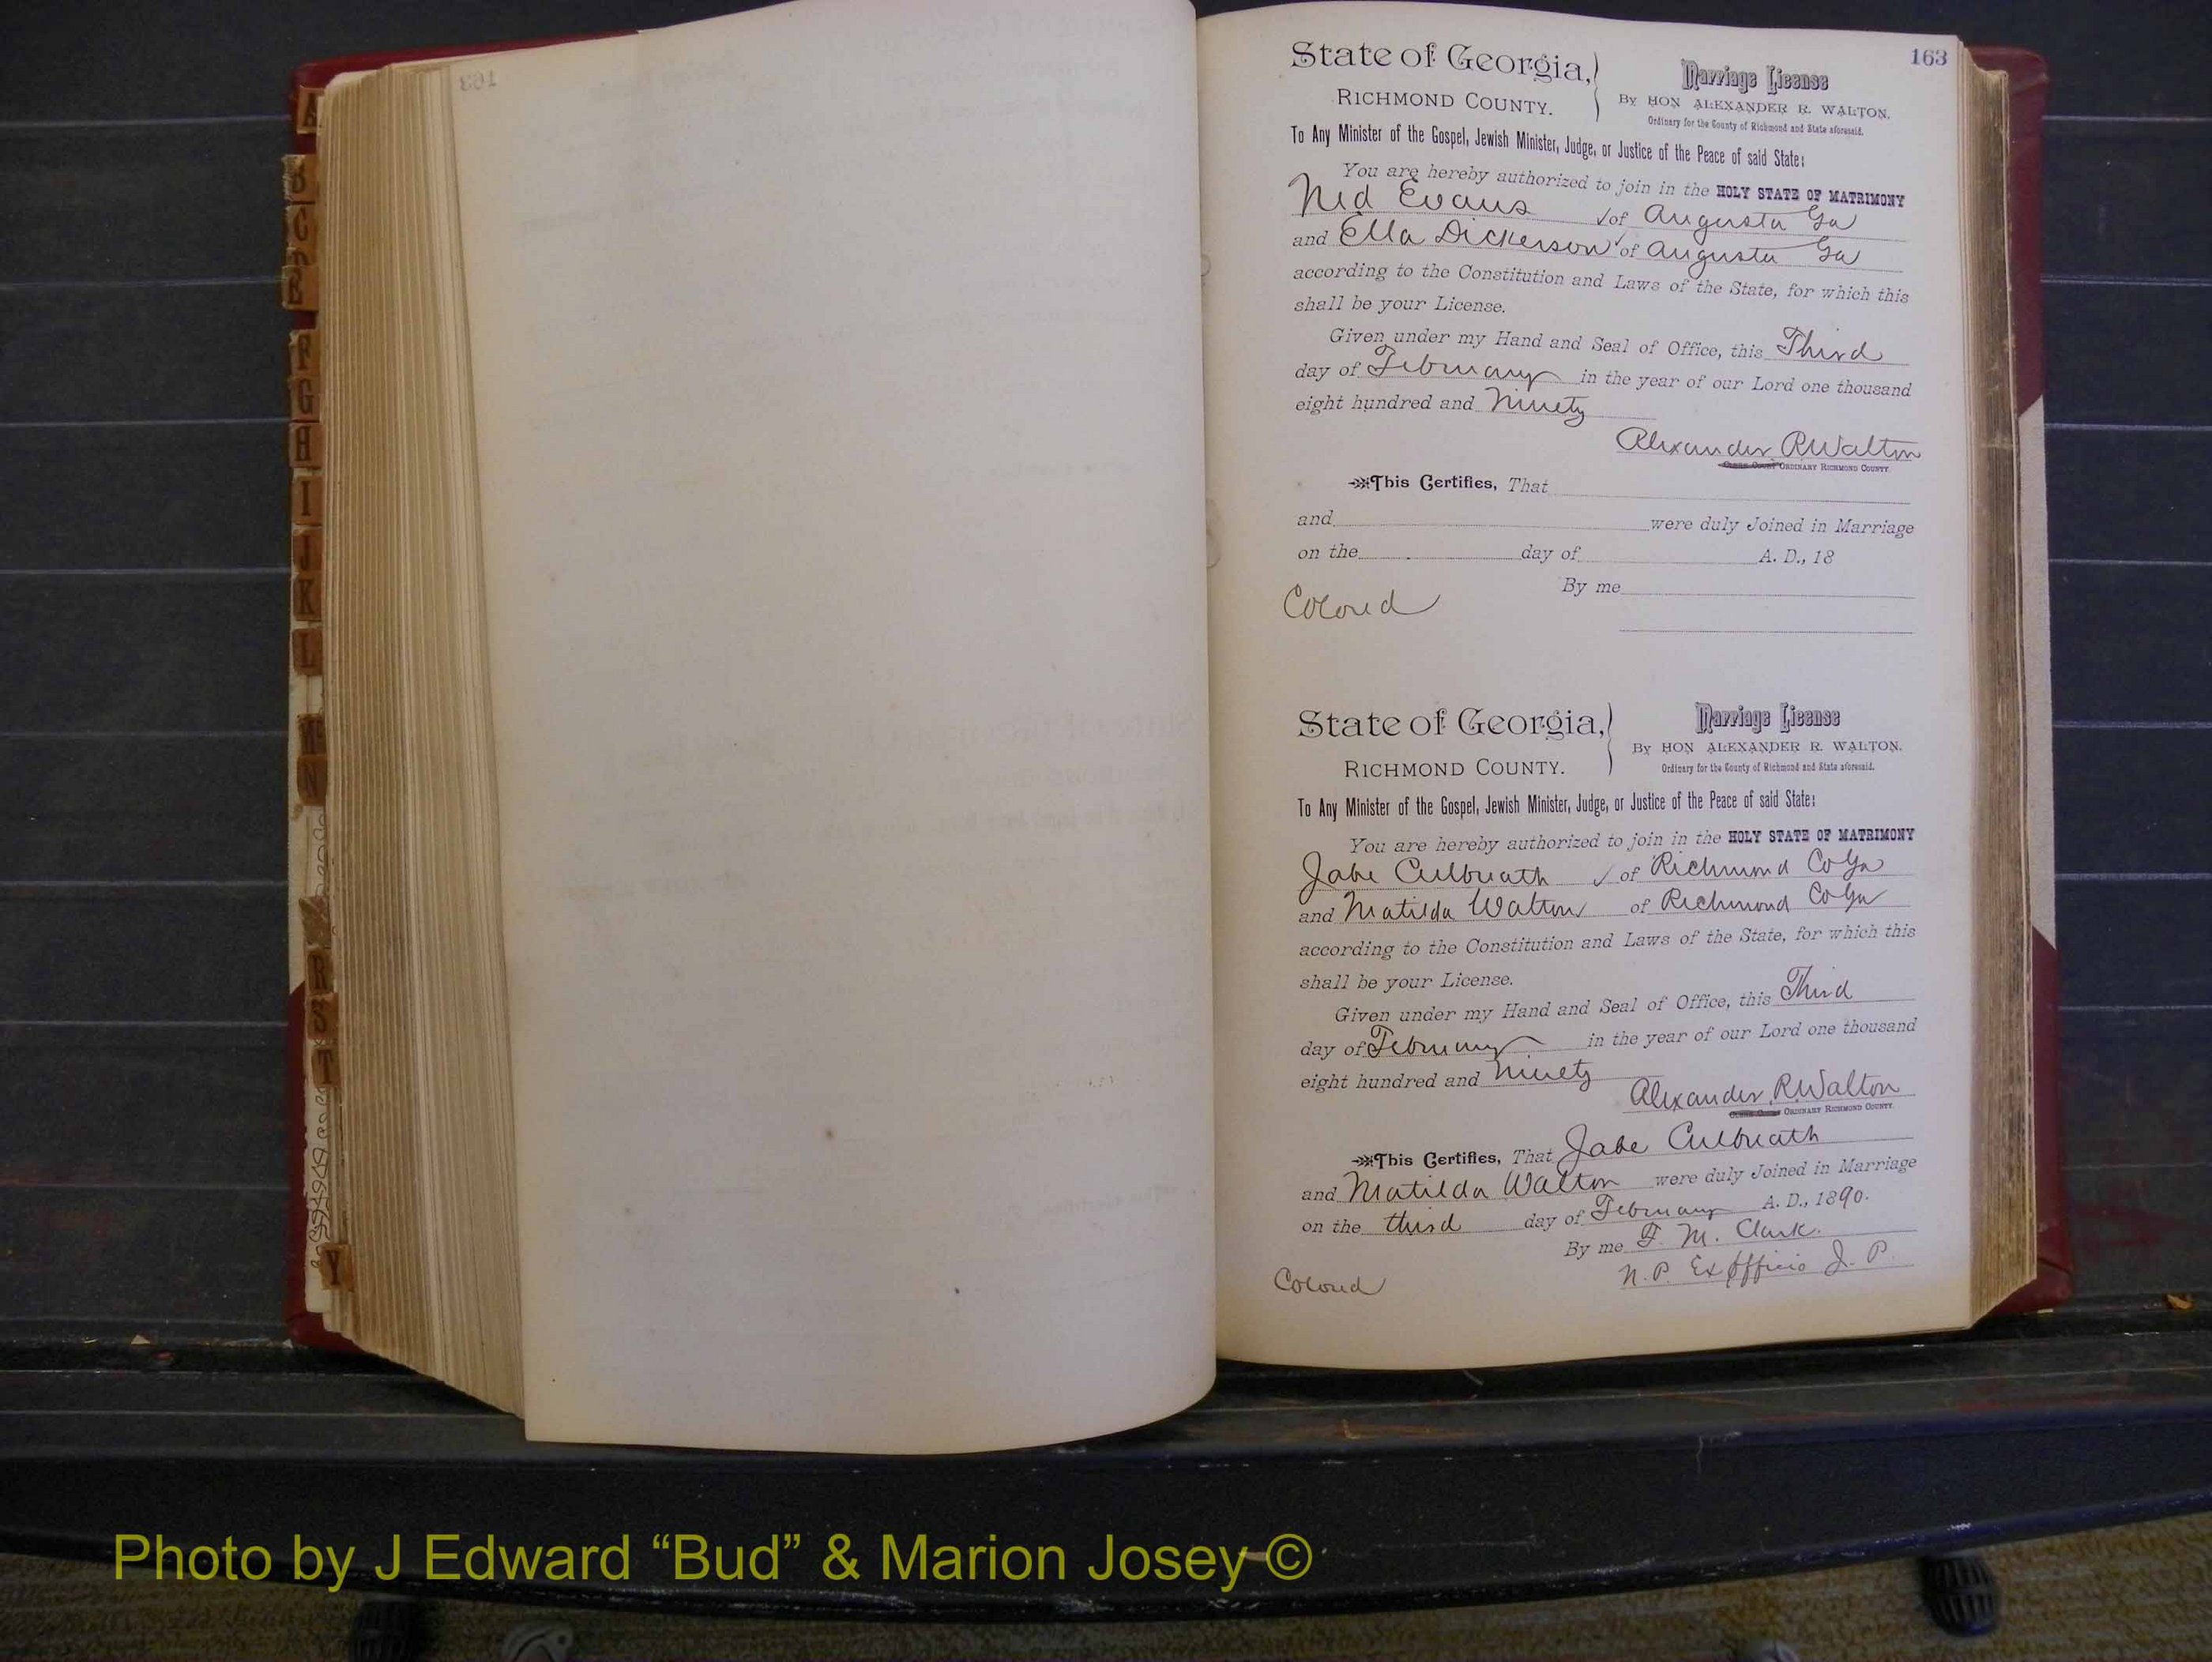 163
A
B
C
D
E
F
G
H
I
J
K
L
M
N
R
S
T
Y
163
State of Georgia,
RICHMOND COUNTY.
Marriage License
By HON ALEXANDER R. WALTON.
Ordinary for the County of Richmond and State aforesaid.
To Any Minister of the Gospel, Jewish Minister, Judge, or Justice of the Peace of said State:
You are hereby authorized to join in the HOLY STATE OF MATRIMONY
Ned Evans of Augusta Ga
and Ella Dickerson of Augusta Ga
according to the Constitution and Laws of the State, for which this
shall be your License.
Given under my Hand and Seal of Office, this Third
day of February in the year of our Lord one thousand
eight hundred and Ninety
Alexander R Walton
ORDINARY RICHMOND COUNTY.
This Certifies, That
and were duly Joined in Marriage
on the day of A. D., 18
By me
Colored
State of Georgia,
RICHMOND COUNTY.
Marriage License
By HON ALEXANDER R. WALTON.
Ordinary for the County of Richmond and State aforesaid.
To Any Minister of the Gospel, Jewish Minister, Judge, or Justice of the Peace of said State:
You are hereby authorized to join in the HOLY STATE OF MATRIMONY
Jabe Culbreath of Richmond Co Ga
and Matilda Walton of Richmond Co Ga
according to the Constitution and Laws of the State, for which this
shall be your License.
Given under my Hand and Seal of Office, this Third
day of February in the year of our Lord one thousand
eight hundred and Ninety
Alexander R Walton
ORDINARY RICHMOND COUNTY.
This Certifies, That Jabe Culbreath
and Matilda Walton were duly Joined in Marriage
on the third day of February A. D., 1890.
By me F. M. Clark.
N. P. Ex Officio J. P.
Colored
Photo by J Edward “Bud” & Marion Josey ©